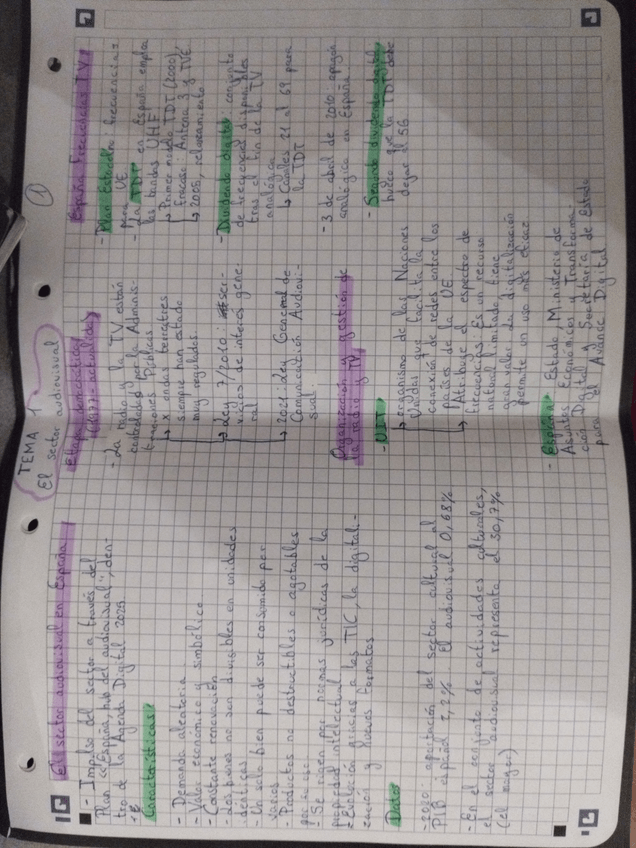 TEMA 1
El sector audiovisual
①
El sector audiovisual en España
- Impulso del sector a través del
Plan "España, hub del audiovisual", den-
tro de la Agenda Digital 2025
Características
- Demanda aleatoria
- Valor económico y simbólico
- Constante renovación
- Los bienes no son divisibles en unidades
idénticas
- Un solo bien puede ser consumido por
varios
- Productos no destructibles o agotables
por su uso
- Se rigen por normas jurídicas de la
propiedad intelectual
- Evolución gracias a las TIC, la digitali-
zación y nuevos formatos
Datos
- 2020: aportación del sector cultural al
PIB español 2,2% El audiovisual 0,68%
- En el conjunto de actividades culturales,
el sector audiovisual representa el 30,7%
(el mayor)
Etapa democrática
(1977 - actualidad)
- La radio y la TV están
controladas por la Adminis-
traciones Públicas
x ondas terrestres
siempre han estado
muy reguladas
→ Ley 7/2010: seser-
vicios de interés gene-
ral
→ 2022: Ley General de
Comunicación Audiovi-
sual
Organización y gestión de
la radio y TV
- UIT
→ organismo de las Naciones
Unidas que facilita la
conexión de redes entre los
países de la UE
→ Atribuye el espectro de
frecuencias. Es un recurso
natural limitado, tiene
gran valor. La digitalización
permite un uso más eficaz
- España: Estado Ministerio de
Asuntos Económicos y Transforma-
ción Digital y Secretaría de Estado
para el Avance Digital
España Frecuencias TV
- Plan Estocolmo: frecuencias
para UE
- La TDT en España emplea
las bandas UHF
→ Primer modelo TDT (2000)
fracaso: Antena 3 y TVE
→ 2005, relanzamiento
- Dividendo digital: conjunto
de frecuencias disponibles
tras el fin de la TV
analógica
→ Canales 21 al 69 para
la TDT
- 3 de abril de 2010: apagón
analógico en España
- Segundo dividendo digital:
hueco que la TDT debe
dejar al 5G